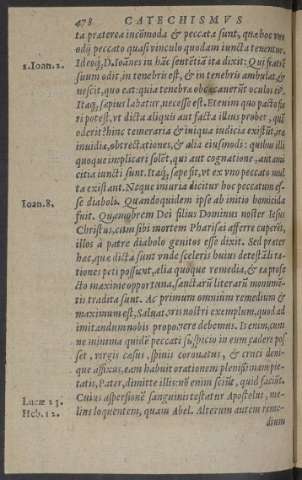 478 CATECHISMVS
ta præterea incōmoda & peccata sunt, quæ hoc vno
odij peccato quasi vinculo quodam iuncta tenentur.
1. Ioan. 2. Ideoq́; D. Ioānes in hāc sentētiā ita dixit: Qui fratrē
suum odit, in tenebris est, & in tenebris ambulat, &
nescit, quo eat: quia tenebræ obcæcauerūt oculos eiꝰ.
Itaq́; sæpius labatur, necesse est. Etenim quo pacto fie
ri potest, vt dicta alicuius aut facta illius probet, quē
oderit? hinc temeraria & iniqua iudicia existūt, iræ,
inuidiæ, obtrectationes, & alia eiusmodi: quibus illi
quoque implicari solēt, qui aut cognatione, aut ami
citia iuncti sunt. Itaq́; sæpe fit, vt ex vno peccato mul
ta existant. Neque iniuria dicitur hoc peccatum es-
se diaboli. Quandoquidem ipse ab initio homicida
Ioan. 8. fuit. Quamobrem Dei filius Dominus noster Iesus
Christus, cùm sibi mortem Pharisæi afferre cuperēt,
illos à patre diabolo genitos esse dixit. Sed præter
hæc, quæ dicta sunt vnde sceleris huius detestādi ra-
tiones peti possunt, alia quoque remedia, & ea profe
cto maximè opportuna, sanctarū literarū monumē-
tis tradita sunt. Ac primum omnium remedium &
maximum est, Saluatoris nostri exemplum, quod ad
imitandum nobis proponere debemus. Is enim, cum
ne minima quidē peccati suspicio in eum cadere pos
set, virgis cæsus, spinis coronatus, & cruci deni-
que affixus, eam habuit orationem plenissimam pie-
tatis, Pater, dimitte illis: nō enim sciūt, quid faciūt.
Lucæ 23. Cuius aspersionē sanguinis testatur Apostolus, me-
Heb. 12. liùs loquentem, quàm Abel. Alterum autem reme-
dium